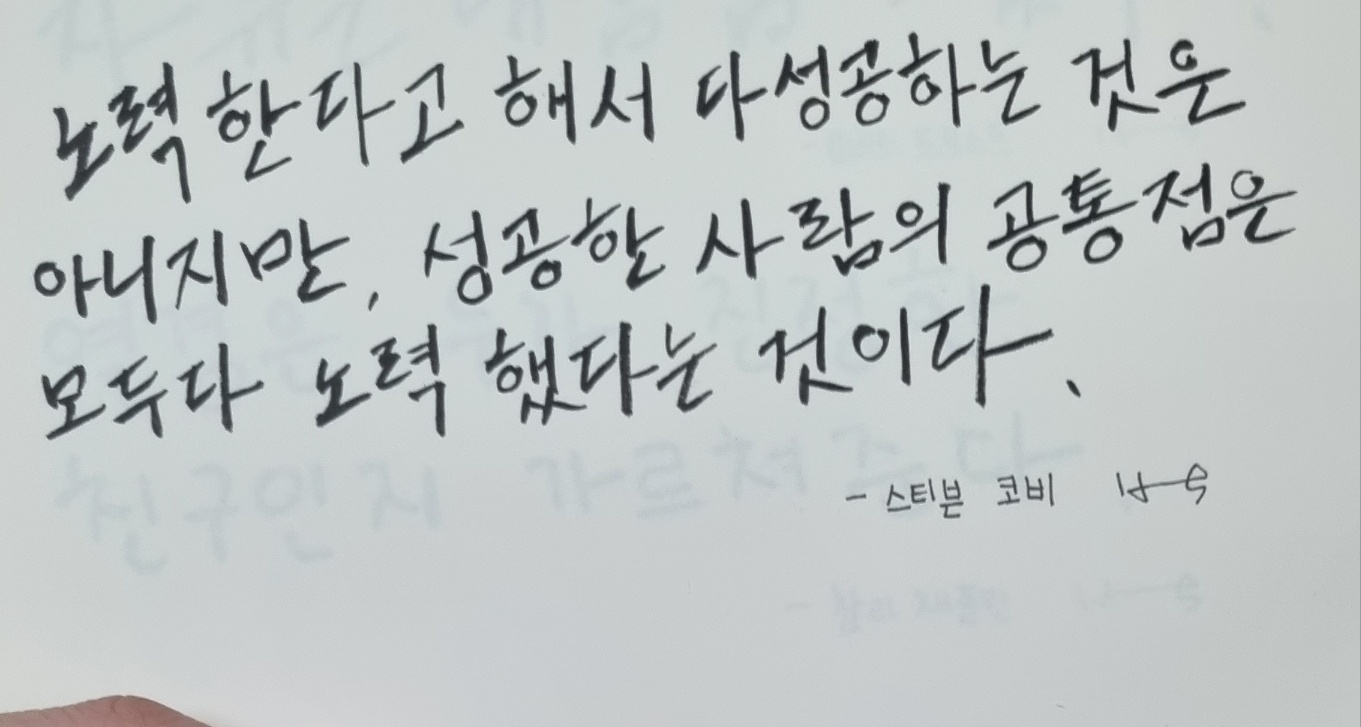 노력한다고 해서 다성공하는 것은
아니지만, 성공한 사람의 공통점은
모두다 노력 했다는 것이다.
- 스티븐 코비